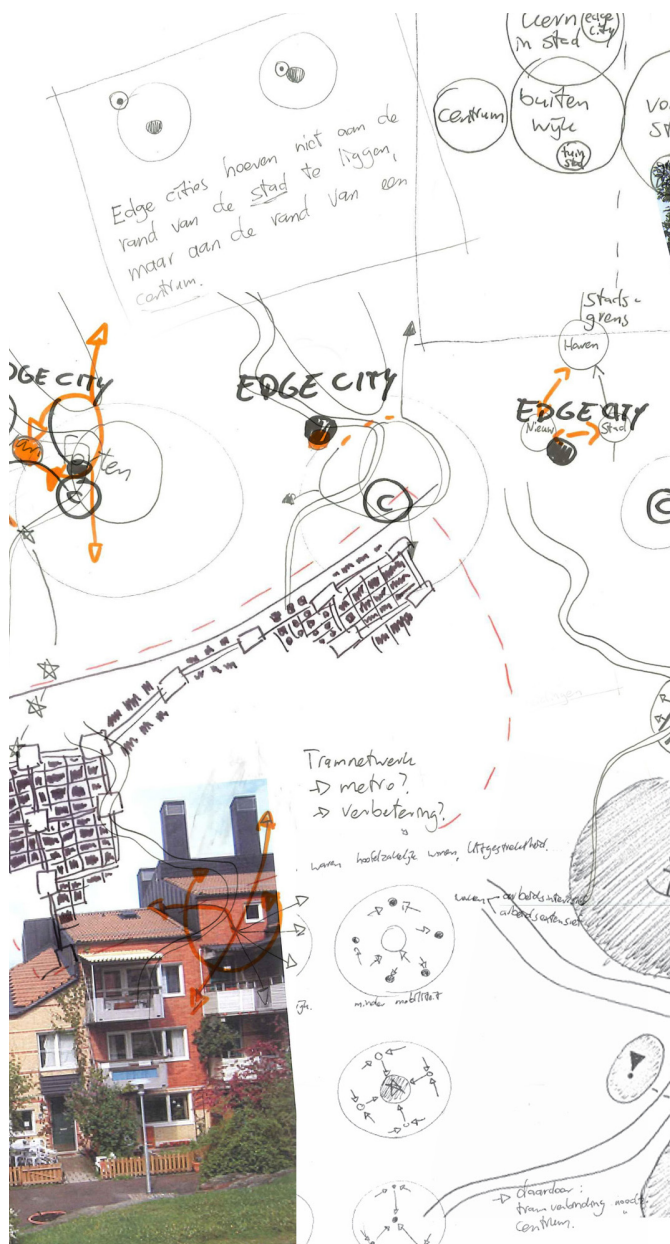 Edge cities hoeven niet aan de
rand van de stad te liggen,
maar aan de rand van een
centrum.
kern
in stad
edge
city
centrum
buiten
wijk
tuin
stad
vo
st
Stads-
grens
Haven
EDGE CITY
Nieuw
Stad
C
EDGE CITY
C
DGE CITY
C
Tramnetwerk
→ metro?
→ verbetering?
wonen, uitgestrektheid.
arbeidsintensief
arbeidsextensief
minder mobiliteit
!
→ daardoor:
tramverbinding
centrum.